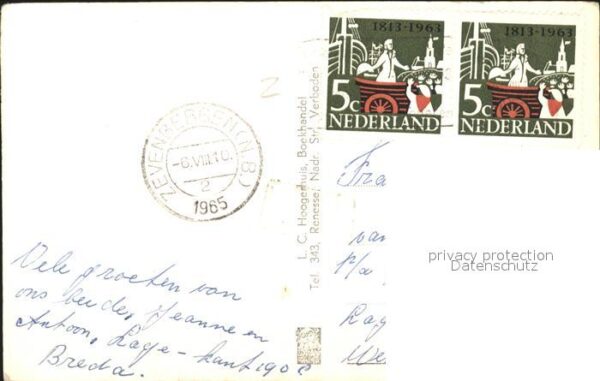 1813-1963
5c
NEDERLAND
1813-1963
5c
NEDERLAND
ZEVENBERGEN (N.B.)
-6.VIII.10.
2
1965
L. C. Hoogerhuis, Boekhandel
Tel. 343, Renesse, Nadr. Str. Verboden
Vele groeten van
ons beide, Jeanne en
Antoon, Lage-kant 90
Breda.
Fra
van
p/a
Lag
We
privacy protection
Datenschutz